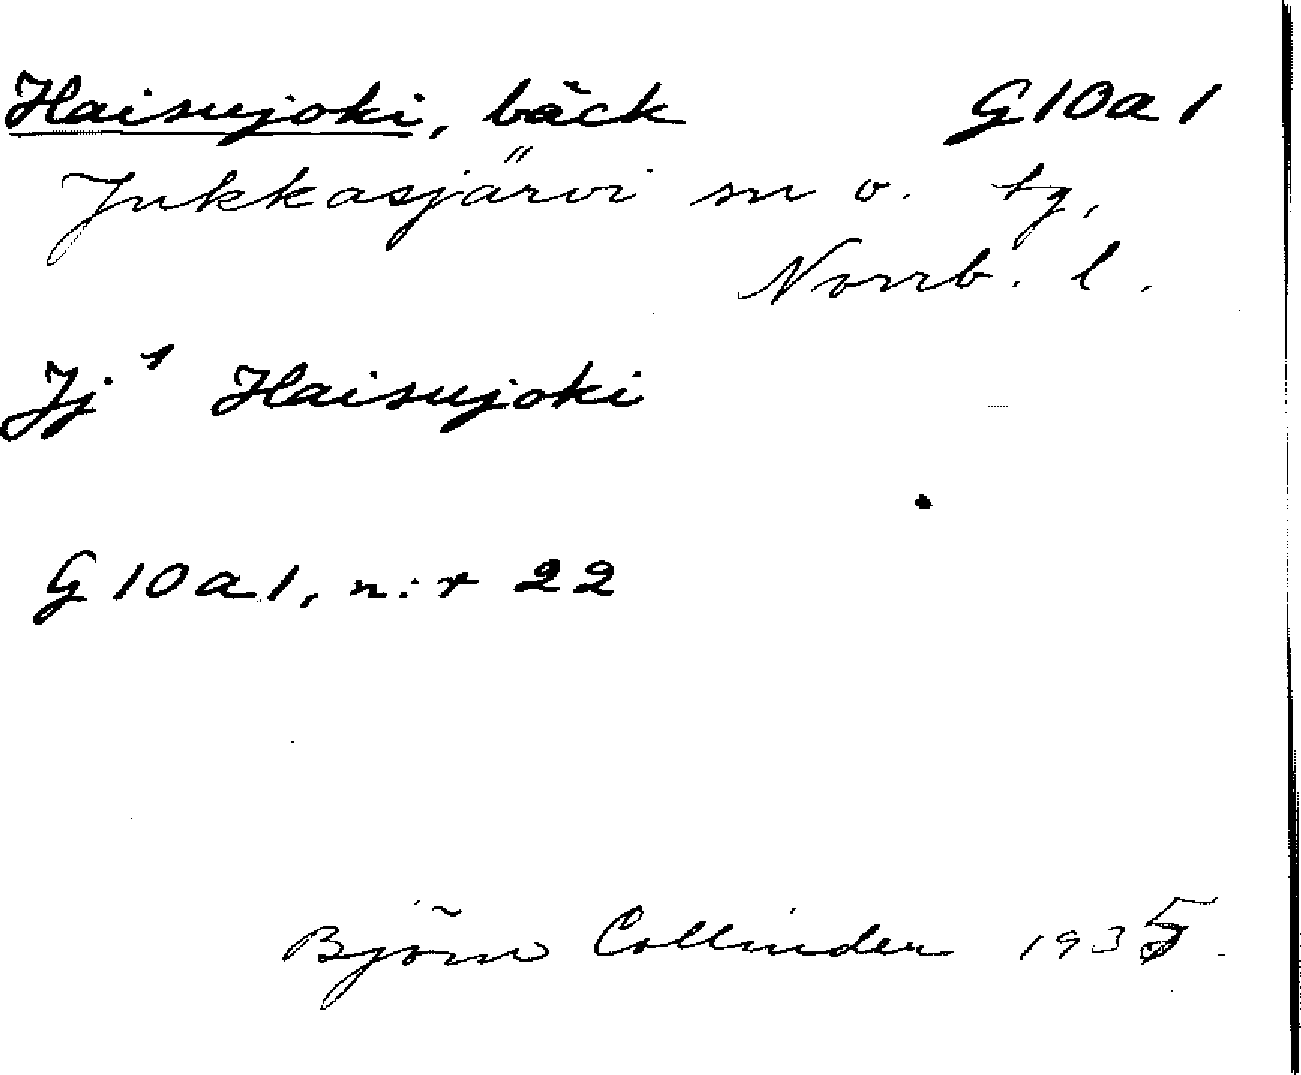 Haisujoki, bäck G10a1
Jukkasjärvi sn o. tg,
Norrb. l.
Jj¹ Haisujoki
G10a1, n:r 22
Björn Collinder 1935.